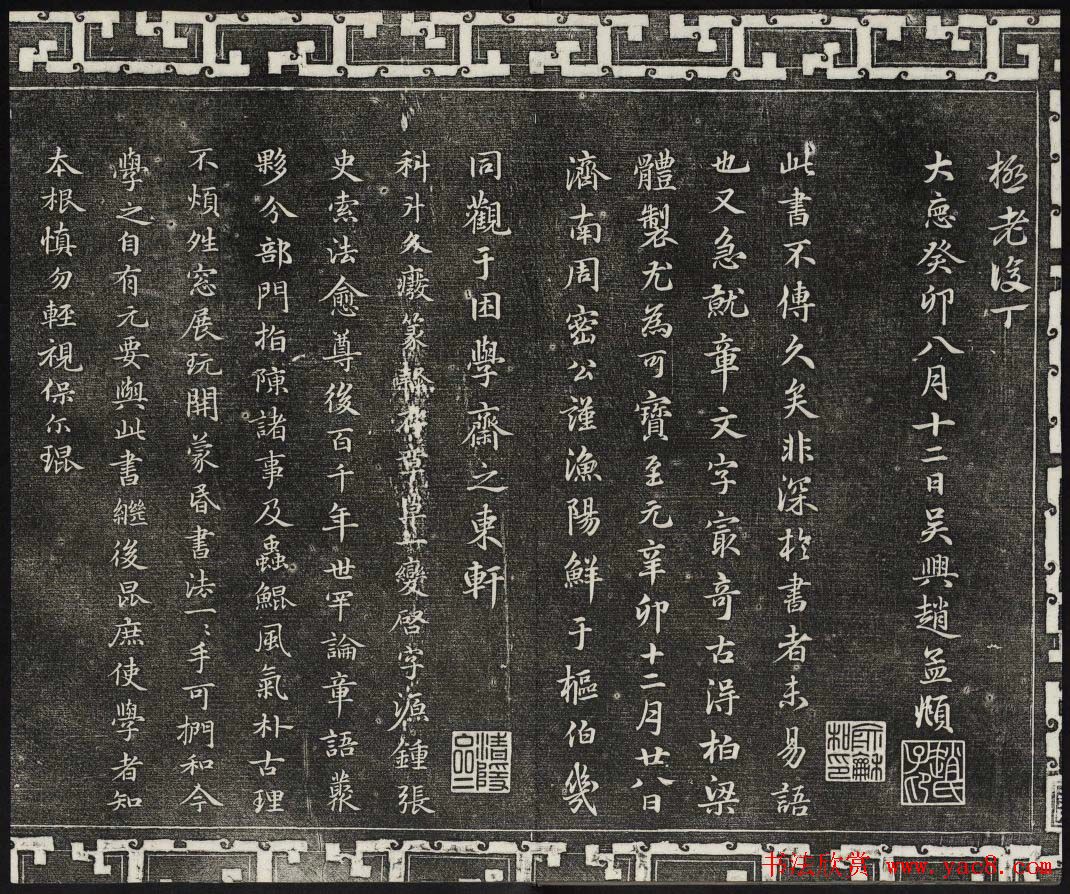 極老後丁
大𢙉癸卯八月十二日吳興趙孟頫
趙氏子卬
此書不傳久矣非深於書者未易語
也又急就章文字㝡奇古淂柏梁
體製尤為可寶至元辛卯十二月廿八日
濟南周密公謹漁陽鮮于樞伯幾
同觀于困學齋之東軒
科斗久癈篆
變啓字源鍾張
史索法愈尊後百千年世罕論章語蘩
夥分部門指陳諸事及蟲鯤風氣朴古理
不煩姓窓展玩開蒙昏書法一〻手可捫和今
學之自有元要與此書繼後昆庶使學者知
本根慎勿輕視保尓琨
书法欣赏 www.yac8.com